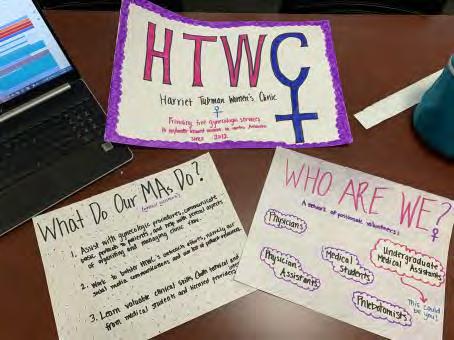 HTWC
Harriet Tubman Women's Clinic
Providing free gynecologic services
to uninsured women in central
since 2012
What Do Our MAs Do?
1. Assist with gynecologic procedures, communicate
basic portals patients, and help with several aspects
of operating and managing clinic flow.
2. Work to bolster HTWC's outreach efforts, namely our
social media communications and
3. Learn valuable clinical skills (both technical and
from medical students and licensed providers
WHO ARE WE?
A network of passionate volunteers!
Physicians
Physician
Assistants
Medical
Students
Undergraduate
Medical Assistants
Phlebotomists
This could
be you!